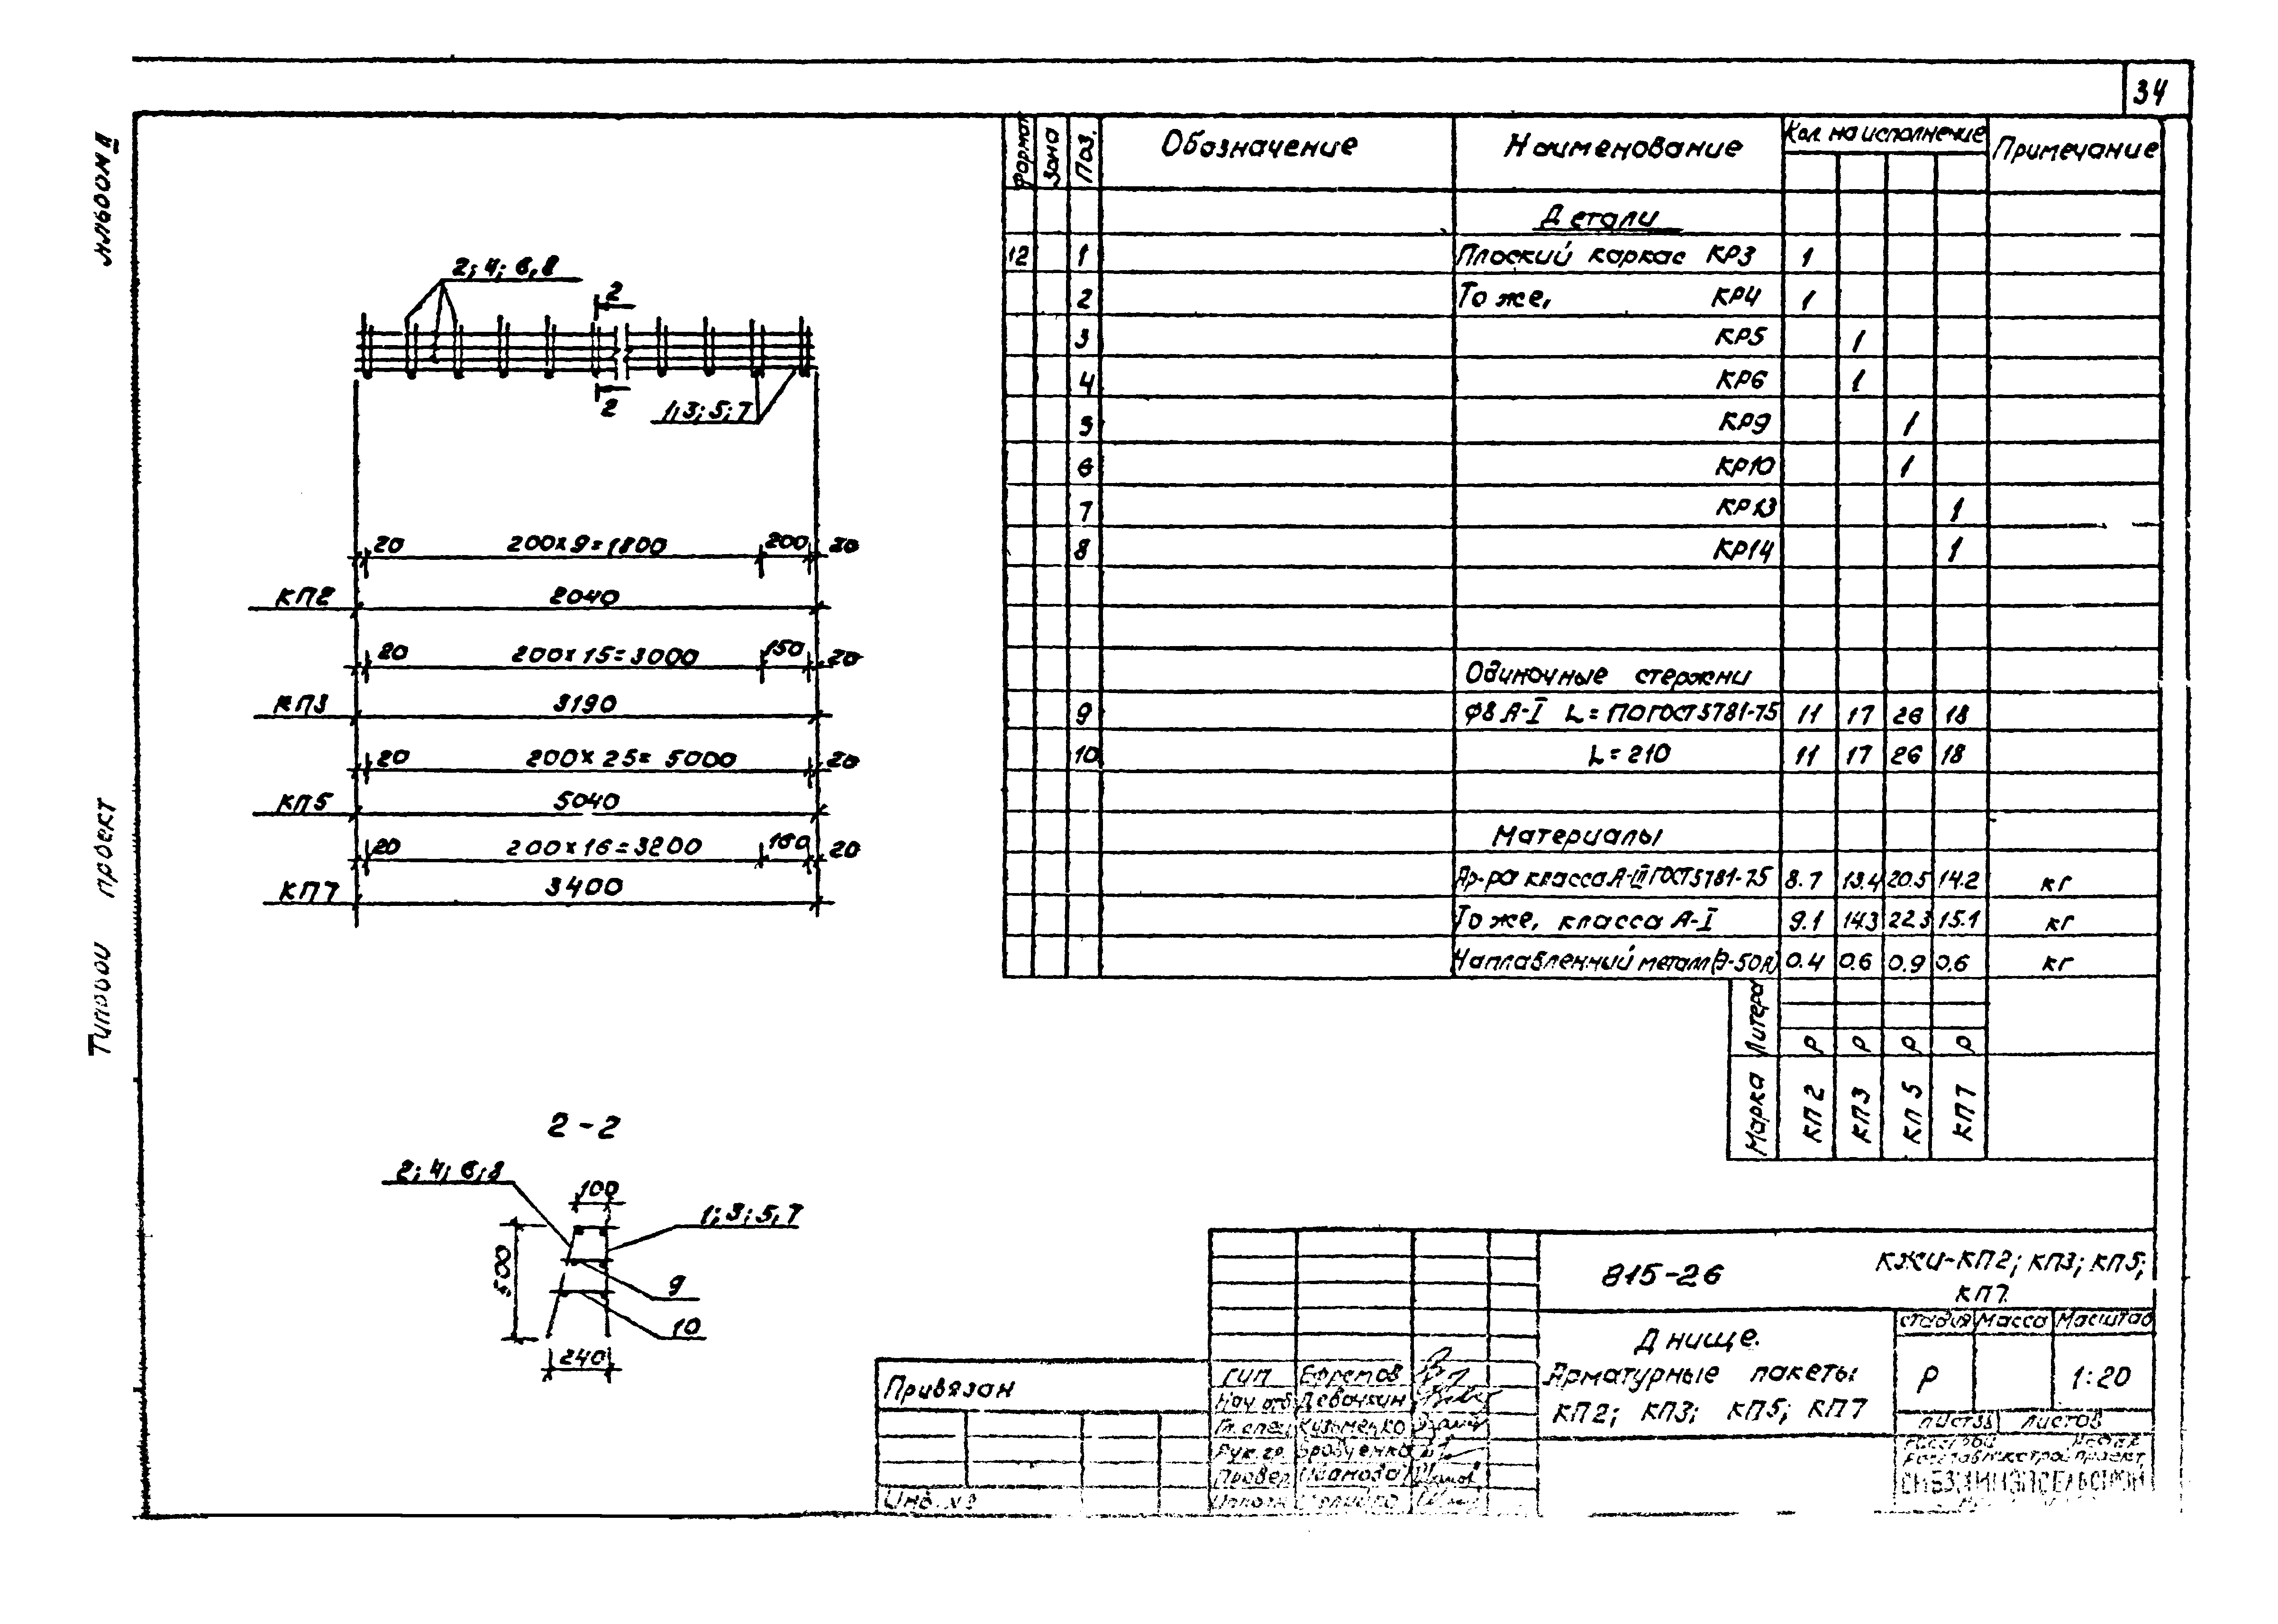 34
Альбом II
Типовой проект
2; 4; 6, 8
2
2
1; 3; 5; 7
20 200×9=1800 200 20
КП2 2040
20 200×15=3000 150 20
КП3 3190
20 200×25=5000 20
КП5 5040
20 200×16=3200 160 20
КП7 3400
2-2
2; 4; 6; 8
100
1; 3; 5, 7
500
9
10
240
Формат Зона Поз. Обозначение Наименование Кол. на исполнение Примечание
Детали
12 1 Плоский каркас КР3 1
2 То же, КР4 1
3 КР5 1
4 КР6 1
5 КР9 1
6 КР10 1
7 КР13 1
8 КР14 1
Одиночные стержни
9 Ф8 А-I L=110 ГОСТ 5781-75 11 17 26 18
10 L=210 11 17 26 18
Материалы
Ар-ра класса А-III ГОСТ 5781-75 8.7 13.4 20.5 14.2 кг
То же, класса А-I 9.1 14.3 22.3 15.1 кг
Наплавленный металл (Э-50А) 0.4 0.6 0.9 0.6 кг
Литера Р Р Р Р
Марка КП2 КП3 КП5 КП7
815-26 КЖИ-КП2; КП3; КП5;
КП7.
Днище.
Арматурные пакеты
КП2; КП3; КП5; КП7
Стадия Масса Масштаб
Р 1:20
Листов
Привязан
Инв. №
ГИП Ефремов
Нач. отд. Девочкин
Гл. спец. Кузьменко
Рук. гр.
Провер. Иванова